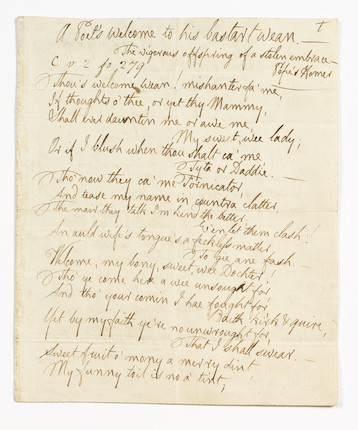 A Poet's Welcome to his bastart wean. — +
The vigorous offspring of a stolen embrace —
Pope's Homer
C v 2 fo 279
Thou's welcome, wean! mishanter fa' me,
If thoughts o' thee, or yet thy Mammy,
Shall ever dauntin me or awe me,
My sweet, wee lady;
Or if I blush when thou shalt ca' me
Tyta or Daddie. —
Tho' now they ca' me Fornicator,
And tease my name in countra clatter,
The mair they talk I'm kend the better.
E'en let them clash!
An auld wife's tongue's a feckless matter
To gie ane fash —
Welcome, my bony, sweet, wee Dochter!
Tho' ye come here a wee unsought for,
And tho' your comin I hae fought for,
Baith Kirk & quire;
Yet by my faith ye're no unwrought for,
That I shall swear. —
Sweet fruit o' mony a merry dint
My funny toil is no a' tint,